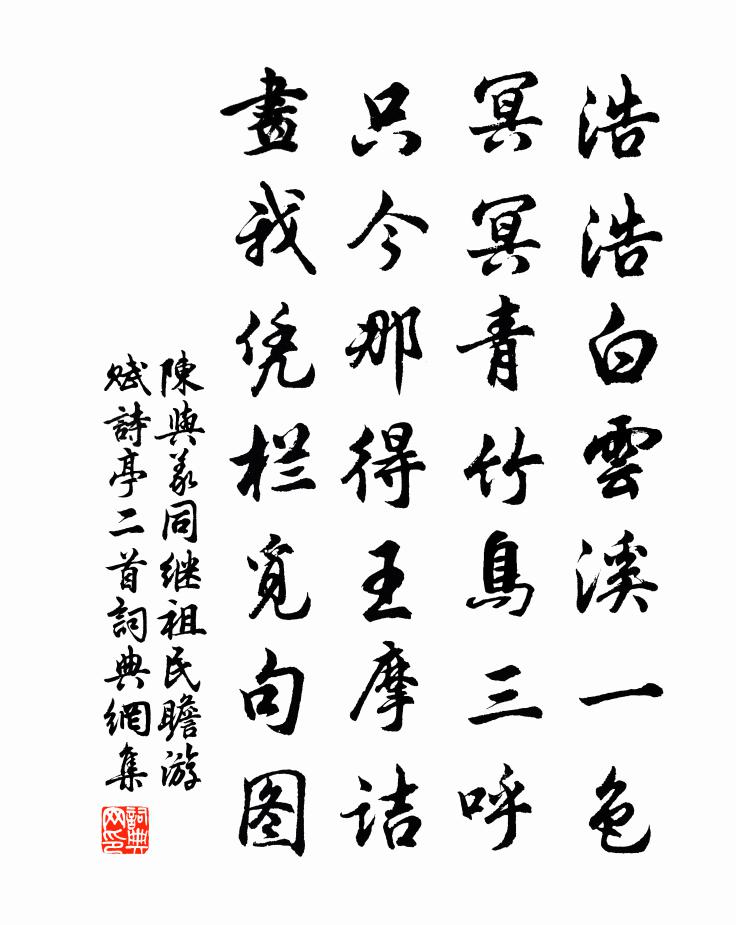 浩浩白雲溪一色
冥冥青竹鳥三呼
只今那得王摩詰
畫我凭栏覓句图
陳與義同继祖民瞻游
赋詩亭二首詞典網集
詞典网印